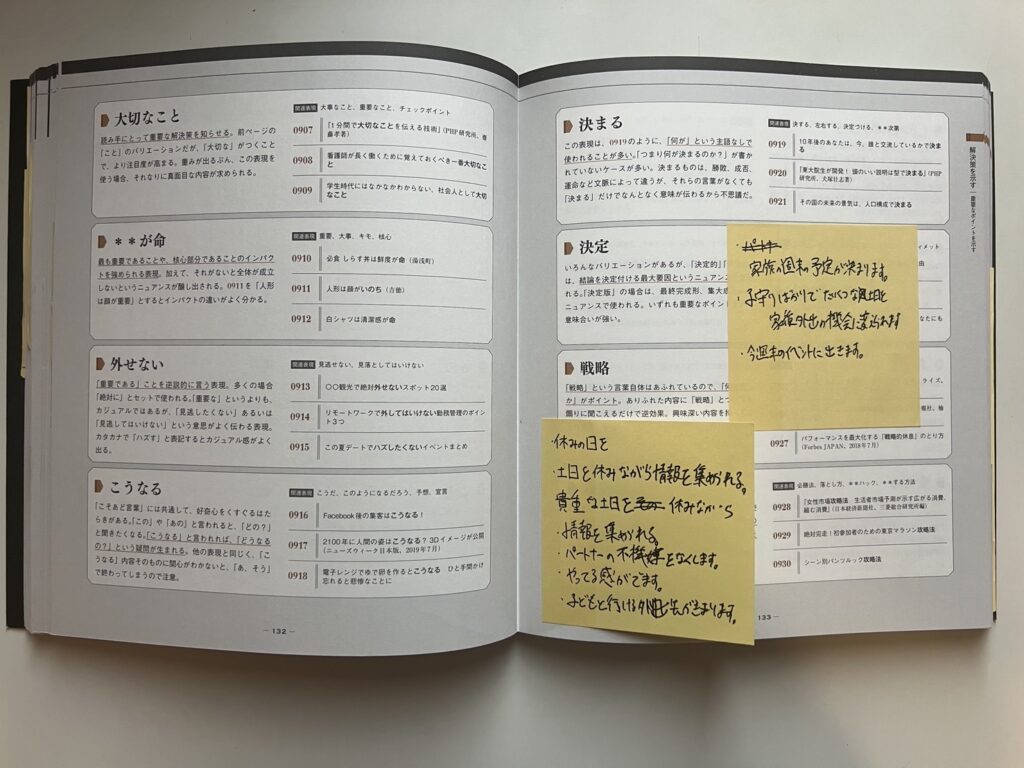 大切なこと
読み手にとって重要な解決策を知らせる。前ページの
「こと」のバリエーションだが、「大切な」がつくこと
で、より注目度が高まる。重みが出るぶん、この表現を
使う場合、それなりに真面目な内容が求められる。
関連表現 大事なこと、重要なこと、チェックポイント
0907 「1分間で大切なことを伝える技術」(PHP研究所、齋
藤孝著)
0908 看護師が長く働くために覚えておくべき一番大切なこ
と
0909 学生時代にはなかなかわからない、社会人として大切
なこと
**が命
最も重要であることや、核心部分であることのインパク
トを強められる表現。加えて、それがないと全体が成立
しないというニュアンスが醸し出される。0911を「人形
は顔が重要」とするとインパクトの違いがよく分かる。
関連表現 重要、大事、キモ、核心
0910 必食 しらす丼は鮮度が命(湯浅町)
0911 人形は顔がいのち(吉徳)
0912 白シャツは清潔感が命
外せない
「重要である」ことを逆説的に言う表現。多くの場合
「絶対に」とセットで使われる。「重要な」というよりも、
カジュアルではあるが、「見逃したくない」あるいは
「見逃してはいけない」という意思がよく伝わる表現。
カタカナで「ハズす」と表記するとカジュアル感がよく
出る。
関連表現 見逃せない、見落としてはいけない
0913 〇〇観光で絶対外せないスポット20選
0914 リモートワークで外してはいけない勤務管理のポイン
ト3つ
0915 この夏デートでハズしたくないイベントまとめ
こうなる
「こそあど言葉」には共通して、好奇心をくすぐるはた
らきがある。「この」や「あの」と言われると、「どの?」
と聞きたくなる。「こうなる」と言われれば、「どうなる
の?」という疑問が生まれる。他の表現と同じく、「こ
うなる」内容そのものに関心がわかないと、「あ、そう」
で終わってしまうので注意。
関連表現 こうだ、このようになるだろう、予想、宣言
0916 Facebook後の集客はこうなる!
0917 2100年に人間の姿はこうなる? 3Dイメージが公開
(ニューズウィーク日本版、2019年7月)
0918 電子レンジでゆで卵を作るとこうなる ひと手間かけ
忘れると悲惨なことに
― 132 ―
決まる
この表現は、0919のように、「何が」という主語なしで
使われることが多い。「つまり何が決まるのか?」が書か
れていないケースが多い。決まるものは、勝敗、成否、
運命など文脈によって違うが、それらの言葉がなくても
「決まる」だけでなんとなく意味が伝わるから不思議だ。
関連表現 決する、左右する、決定づける、**次第
0919 10年後のあなたは、今、誰と交流しているかで決ま
る
0920 「東大院生が開発! 頭のいい説明は型で決まる」(PHP
研究所、犬塚壮志著)
0921 その国の未来の景気は、人口構成で決まる
解決策を示す|重要なポイントを示す
決定
いろんなバリエーションがあるが、「決定的」「
は、結論を決定付ける最大要因というニュアンス
れる。「決定版」の場合は、最終完成形、集大成
ニュアンスで使われる。いずれも重要なポイント
意味合いが強い。
イメット
なたにも
・
家族の週末の予定が決まります。
・子守りばかりでたいくつな土日を
家族外出の機会に変えられます
・今週末のイベントに出きます。
戦略
「戦略」という言葉自体はあふれているので、「何
か」がポイント。ありふれた内容に「戦略」と
煽りに聞こえるだけで逆効果。興味深い内容を
ライズ、
0927 パフォーマンスを最大化する「戦略的休息」のとり方
(Forbes JAPAN、2018年7月)
・休みの日を
・土日を休みながら情報を集められる。
貴重な土日を 休みながら
・情報を集められる。
・パートナーの不機嫌をなくします。
・やってる感がでます。
・子どもと行ける外出先が決まります。
関連表現 必勝法、落とし方、**ハック、**する方法
0928 「女性市場攻略法 生活者市場予測が示す広がる消費、
縮む消費」(日本経済新聞社、三菱総合研究所編)
0929 絶対完走! 初参加者のための東京マラソン攻略法
0930 シーン別パンツルック攻略法
133 ―